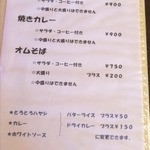 ※サラダ・コーヒー付き ￥900
※中盛りと大盛りはできません
焼きカレー
※サラダ・コーヒー付き ￥900
※中盛りと大盛りはできません
オムそば
※サラダ・コーヒー付き ￥750
※大盛り プラス ￥200
※中盛りはできません
★とろとろハヤシ
★カレー
★ホワイトソース
バターライス プラス￥50
ドライカレー プラス￥150
に変更できます。